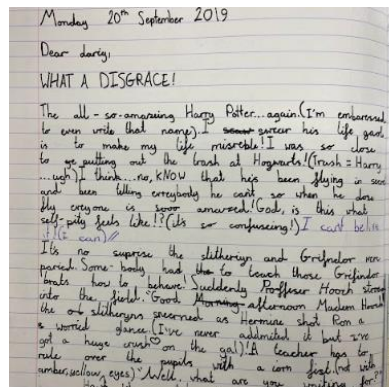 Monday 20th September 2019
Dear dariy,
WHAT A DISGRACE!
The all-so-amazing Harry Potter...again.(I'm embaressed
to even write that name). I swear his life goal
is to make my life misreble! I was so close
to putting out the trash at Hogwarts!(Trush = Harry
...ugh) I think...no, KNOW that he's been flying in
and been telling erreybody he cant so when he dose
fly everyone is amazed! God, is this what
self-pity feels like!?(it's so confuseing!) I cant belive
it!(I can)//
It's no suprise the slitheriyn and Grifindor were
paried. Some-body had to teach those Grifinder
brats how to behave. Suddenly Proffesor Hooch
into the field. "Good afternoon Madeem Hooch
the slitheryns sneerned as Hermine shot Ron a
a worried glance. (I've never addmited it but I've
got a huge crush on the gal)! A teacher has to
rule over the pupils with a iorn fist (not with
amber, yellow, eyes) "Well... what are you waiting for